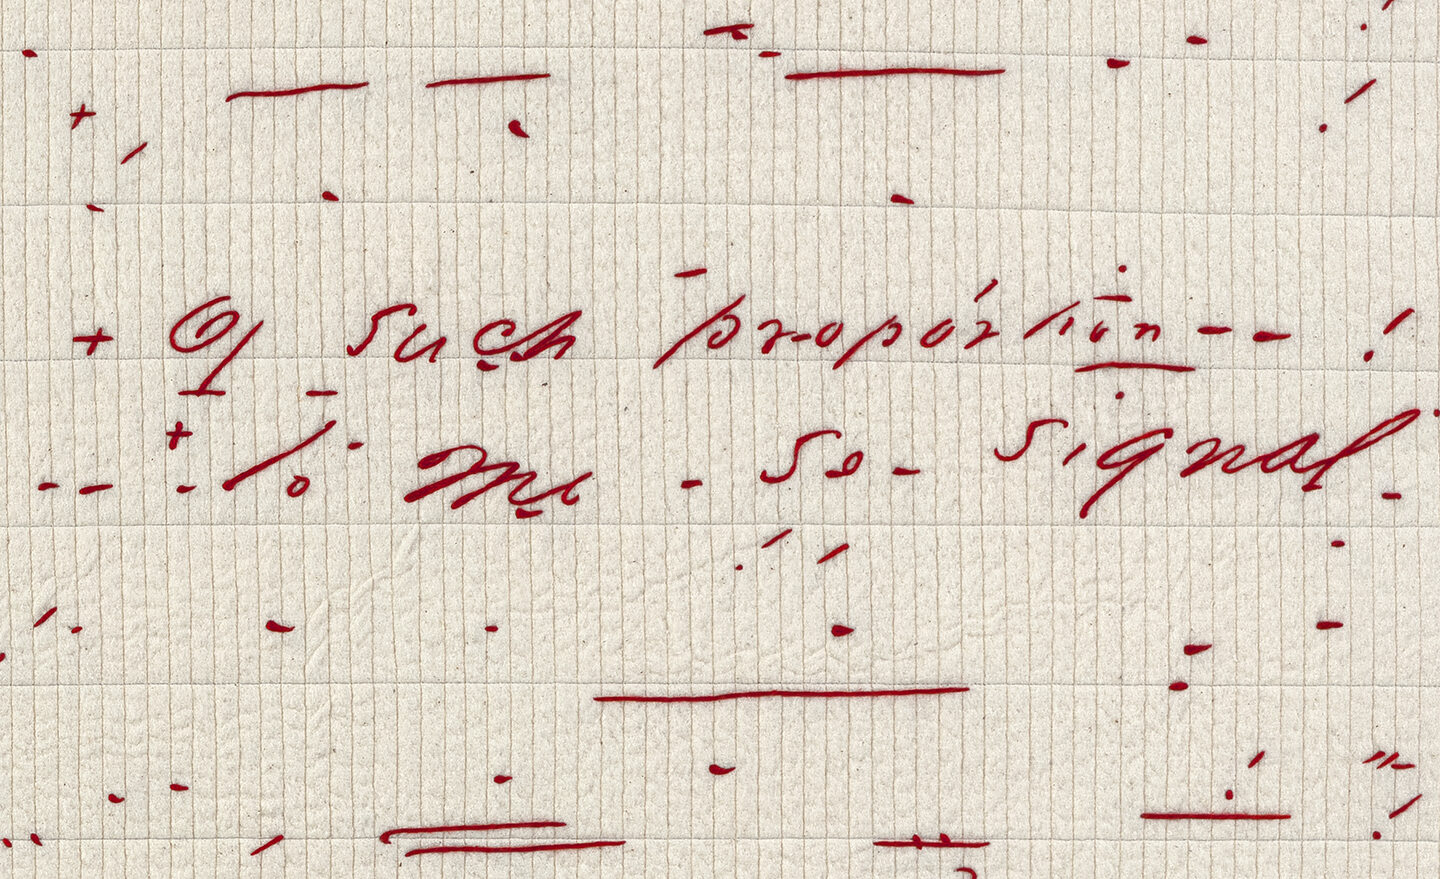 + Of such proportion -- !
-- - to me - so - signal -